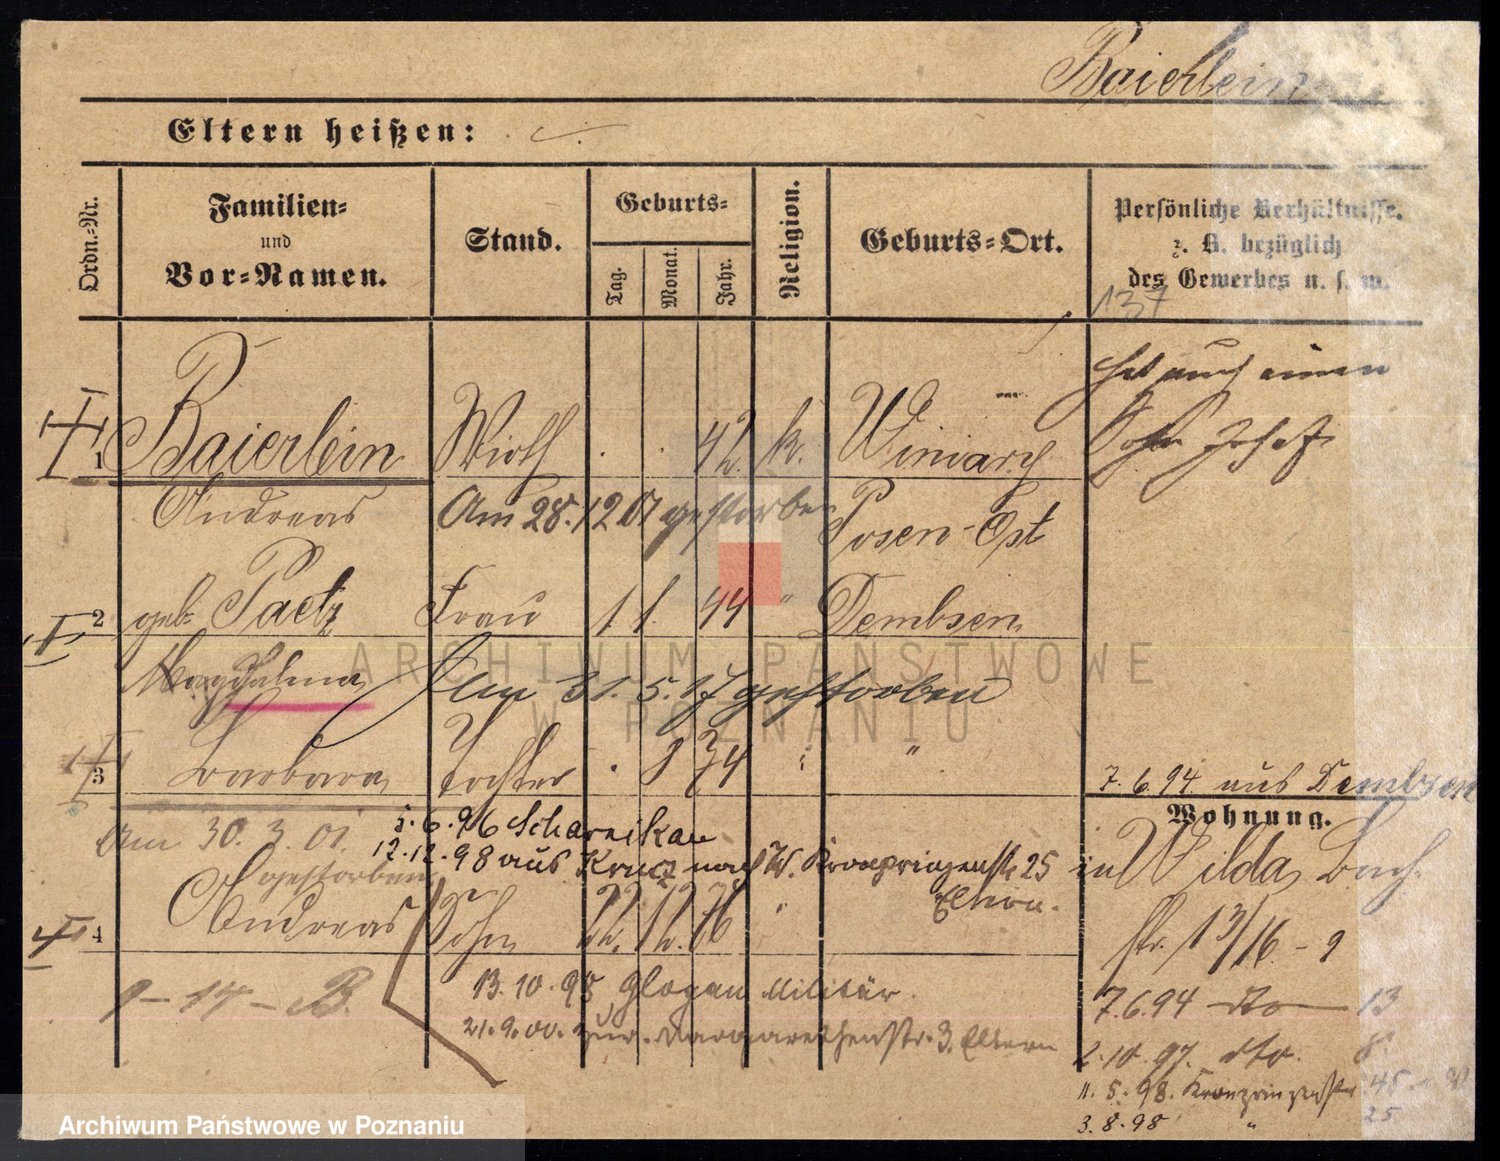 Baierlein
Eltern heißen:
Ordn.-Nr.
Familien-
und
Vor-Namen.
Stand.
Geburts-
Tag.
Monat.
Jahr.
Religion.
Geburts-Ort.
Persönliche Verhältnisse,
z. B. bezüglich
des Gewerbes u. s. w.
137
hat auch einen
Sohn Josef
1 Baierlein Wirth 42. k. Winiary
Andreas Am 28.12 01 gestorben Posen-Ost
2 geb. Paetz Frau 1 1. 44 " Dembsen
Magdalena Am 31.5.17 gestorben
3 Barbara Tochter 8 74 "
7.6.94 aus Dembsen
Wohnung.
Am 30.3.01. gestorben
6.96 Scharnikau
12.12.98 aus Kreuz nach W. Kronprinzenstr 25
Eltern.
in Wilda, Bach-
str. 13/16 - 9
4 Andreas Sohn 22. 12. 76 "
9-14-B.
13.10.98 Glogau Militär.
7.6.94 dto 13
21.9.00. zur. Margarethenstr. 3. Eltern
2.10.97. dto. 8.
11.5.98. Kronprinzenstr 45
3.8.98 " 25
ARCHIWUM PAŃSTWOWE
W POZNANIU
Archiwum Państwowe w Poznaniu